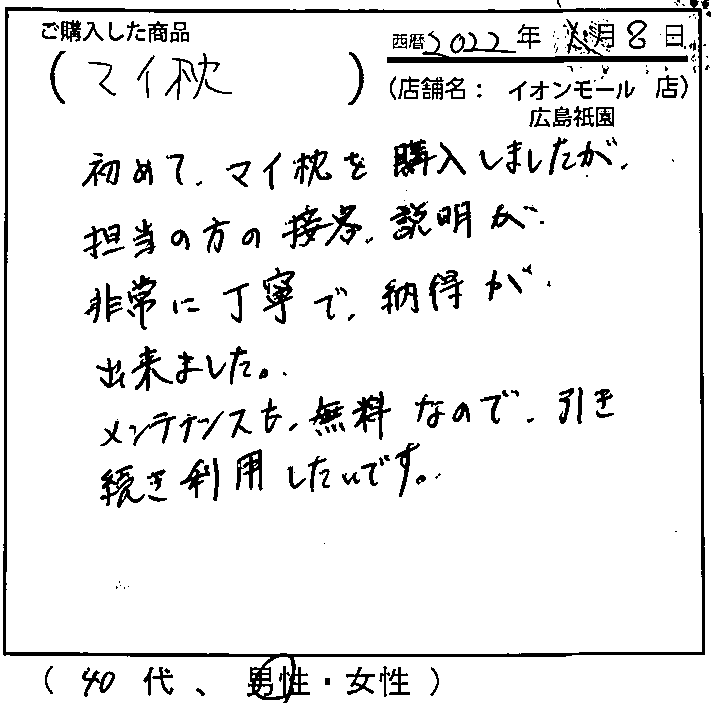 ご購入した商品
(マイ枕)
西暦2022年 月8日
(店舗名: イオンモール 店)
広島祇園
初めて、マイ枕を購入しましたが、
担当の方の接客、説明が
非常に丁寧で、納得が
出来ました。
メンテナンスも、無料なので、引き
続き利用したいです。
(40代、男性・女性)